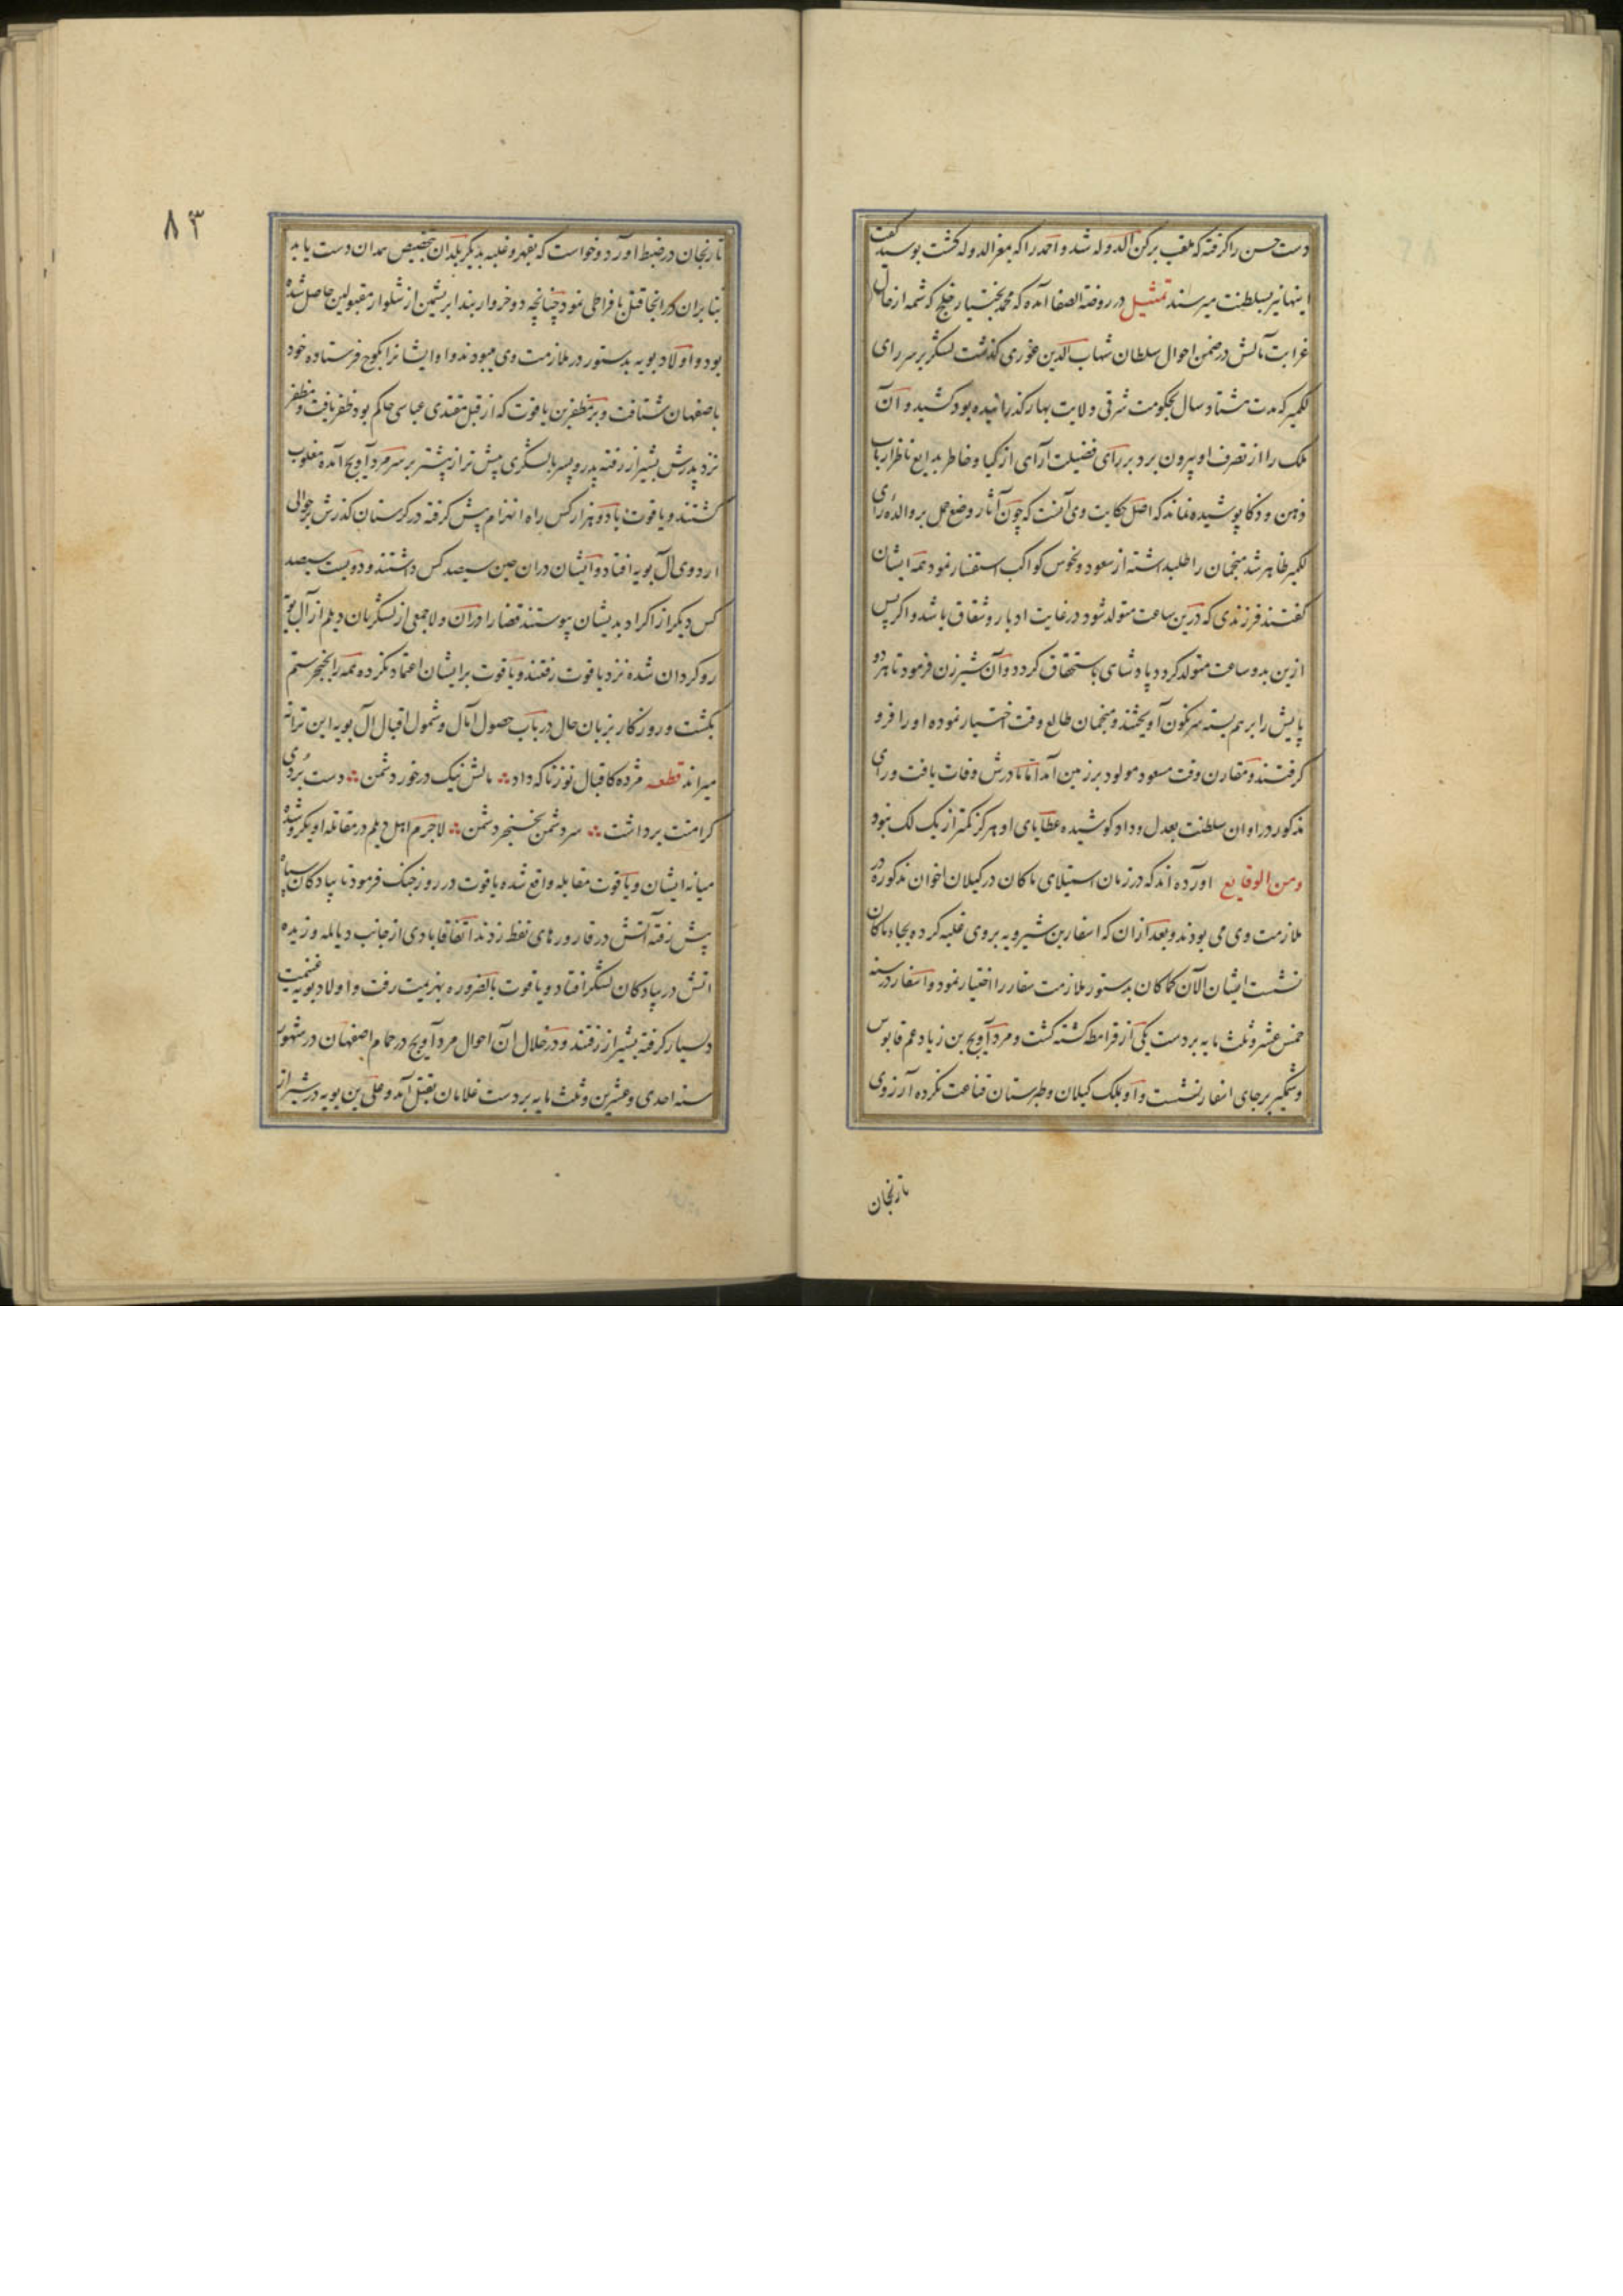 دست حسن را گرفته که ملقب برکن الدوله شد و احمد را که بمعز الدوله گشت بوسید گفت
اینها نیز بسلطنت میرسند تمثیل در روضة الصفا آمده که محمد بختیار خلج که شمه از حال
غرابت مآلش در ضمن احوال سلطان شهاب الدین غوری گذشت لشکر بر سر رای
لکمیر که مدت هشتاد سال بحکومت شرقی ولایت بهار گذرانیده بود کشید و آن
ملک را از تصرف او بیرون برد بر رای فضیلت آرای ازکیا و خاطر بدایع ناظر ارباب
ذهن و ذکا پوشیده نماند که اصل حکایت وی آنست که چون آثار وضع حمل بر والده رای
لکمیر ظاهر شد منجمان را طلبداشته از سعود و نحوس کواکب استفسار نمود همه ایشان
گفتند فرزندی که درین ساعت متولد شود در غایت ادبار و شقاق باشد و اگر پس
ازین بدو ساعت متولد گردد پادشاهی باستحقاق گردد و آن شیرزن فرمود تا هر دو
پایش را بر هم بسته سرنگون آویختند و منجمان طالع وقت اختیار نموده او را فرو
گرفتند و مقارن وقت مسعود مولود بر زمین آمد اما مادرش وفات یافت و رای
مذکور در اوان سلطنت بعدل و داد کوشیده عطایای او هرگز کمتر از یک لک نبود
ومن الوقایع اورده اند که در زمان استیلای ماکان در کیلان اخوان مذکوره در
ملازمت وی می بودند و بعد از ان که اسفار بن شیرویه بر وی غلبه کرده بجاه ماکان
نشست ایشان الآن کماکان بدستور ملازمت سفار را اختیار نمود و اسفار در سنه
خمس عشر و ثلث مایه بر دست یکی از قرامطه کشته گشت و مرد آویج بن زیاد عم قابوس
وشمگیر بر جای اسفار نشست و او بملک کیلان و طبرستان قناعت نکرده آرزوی
تا زنجان
۸۳
تا زنجان در ضبط اورد و خواست که بقهر و غلبه بدیگر بلدان بتخصیص همدان دست یابد
بنابران در انجا قتل بافراطی نمود چنانچه دو خروار بند ابریشمین از شلوار مقتولین حاصل شده
بود و اولاد بویه بدستور در ملازمت وی میبودند و او ایشانرا بکوج فرستاده خود
باصفهان شتافت و بر مظفر بن یاقوت که از قبل مقتدی عباسی حاکم بود ظفر یافت و مظفر
نزد پدرش بشیراز رفته پدر و پسر با لشکری بیش تر از پیشتر بر سر مرد آویج آمده مغلوب
گشتند و یاقوت با دو هزار کس راه انهزام پیش گرفته در کرستان گذرش بر حوالی
اردوی آل بویه افتاد و ایشان دران حین سیصد کس داشتند و دویست سیصد
کس دیگر از اکراد بدیشان پیوستند قضا را دران ولا جمعی از لشکریان دیلم از آل بویه
رو گردان شده نزد یاقوت رفتند و یاقوت بر ایشان اعتماد نکرده همه را بخنجر ستم
بکشت و روزگار بزبان حال در باب حصول آمال و شمول اقبال آل بویه این ترانه
میراند قطعه مژده کاقبال نوز ناگه داد ∴ مالش نیک درخور دشمن ∴ دست بردی
کرامنت برداشت ∴ سر دشمن بخنجر دشمن ∴ لاجرم اهل دیلم در مقاتله او یکرو شده
میانه ایشان و یاقوت مقابله واقع شده یاقوت در روز جنگ فرمود تا پیادگان سپاه
پیش رفته آتش در قارورهای نفط زدند اتفاقا بادی از جانب دیالمه وزیده
اتش در پیادگان لشکر افتاد و یاقوت بالضروره بهزیمت رفت و اولاد بویه غنیمت
بسیار گرفته بشیراز رفتند و در خلال آن احوال مرد آویج در حمام اصفهان در شهور
سنه احدی و عشرین و ثلث مایه بر دست غلامان بقتل آمد و علی بن بویه در شیراز